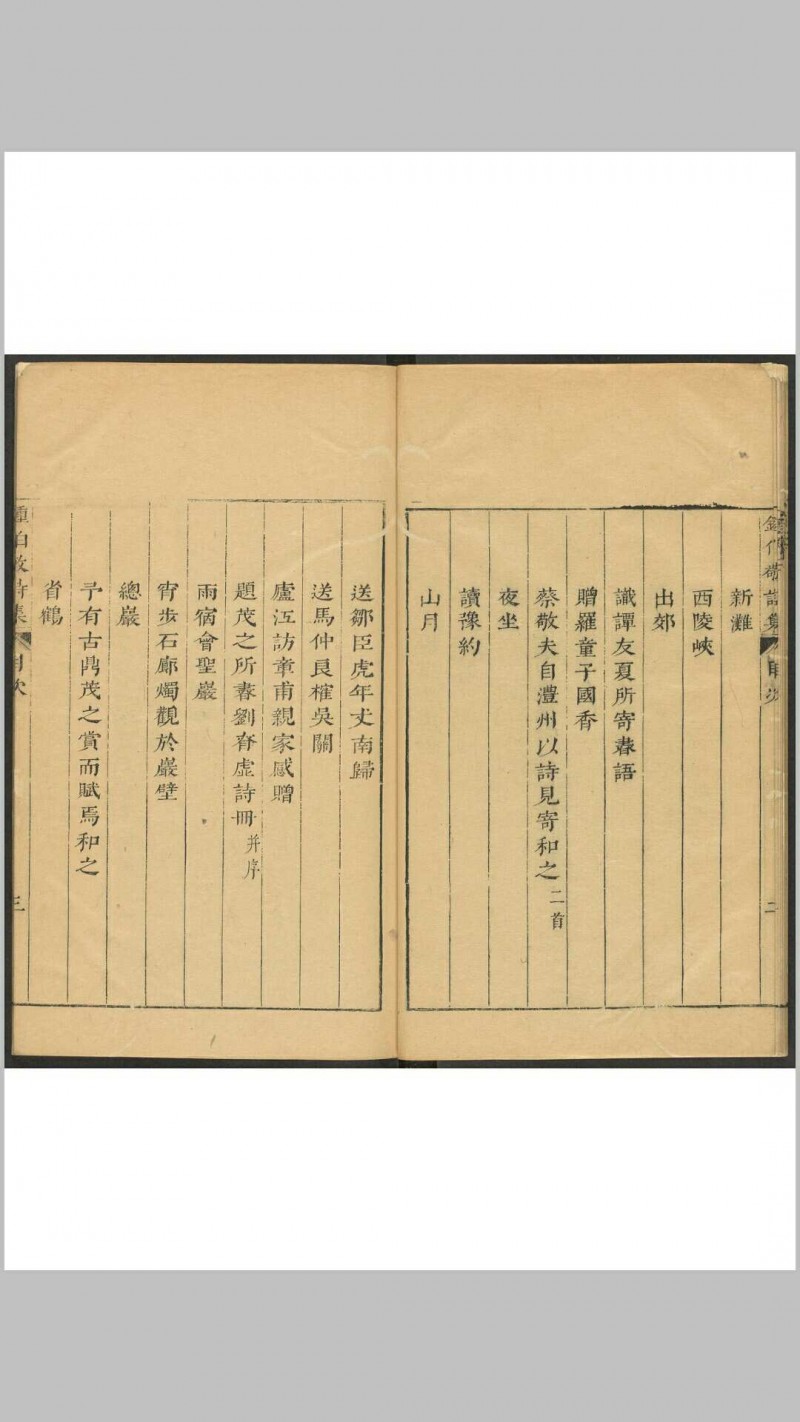 鍾伯敬詩集 目次 二
新灘
西陵峽
出郊
識譚友夏所寄暮語
贈羅童子國香
蔡敬夫自澧州以詩見寄和之 二首
夜坐
讀豫約
山月
送鄒臣虎年丈南歸
送馬仲良榷吳關
廬江訪章甫親家感贈
題茂之所書劉眘虛詩冊 并序
雨宿會聖巖
宵步石廊燭觀於巖壁
總巖
予有古鼎茂之賞而賦焉和之
省鶴
鍾伯敬詩集 目次 三